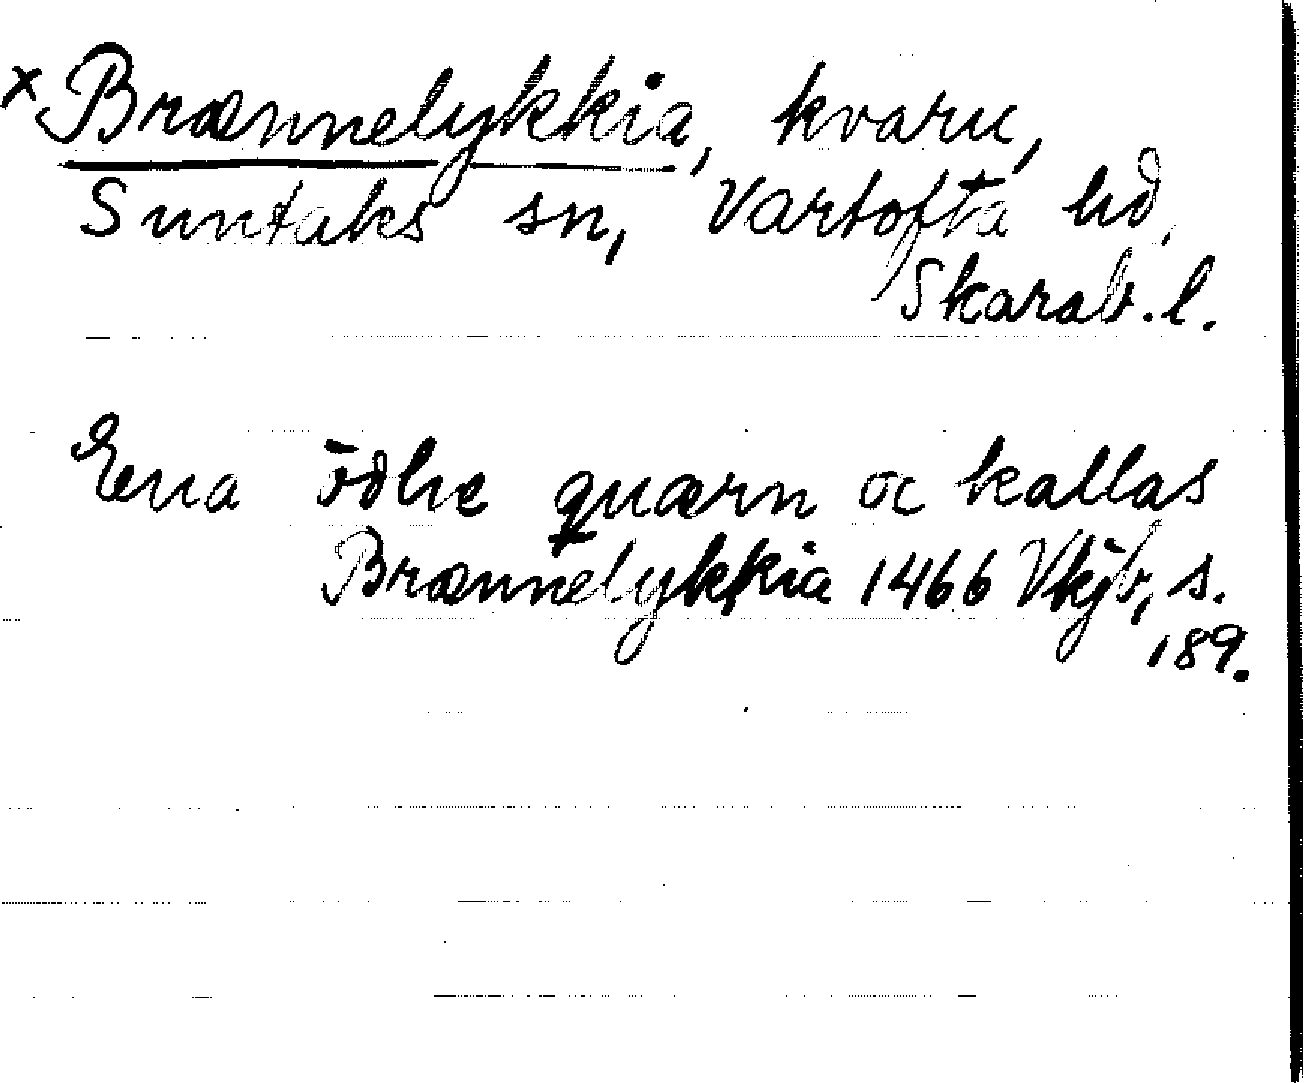 x Brænnelykkia, kvarn,
Suntaks sn, Vartofta hd,
Skarab. l.
Ena ödhe quærn oc kallas
Brænnelykkia 1466 Vkjb, s.
189.